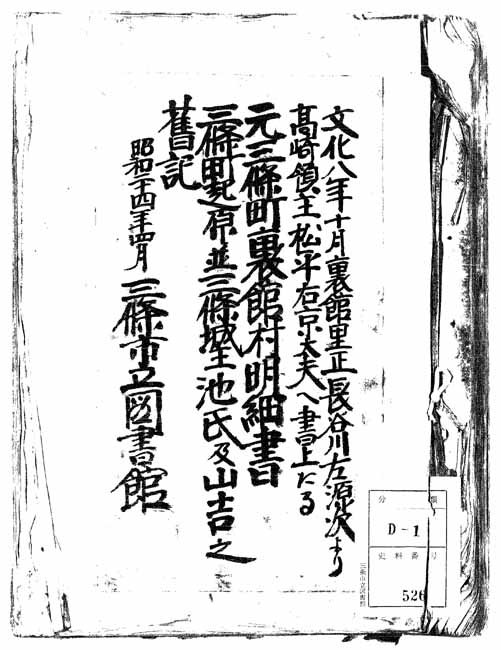 文化八年十月裏館里正長谷川左源次より
髙崎領主松平右京太夫へ書上たる
元三條町裏館村明細書
三條町起原並三條城主池氏及山吉之
舊記
昭和二十四年四月
三條市立図書館
分類
D-1
史料番号
526
三条市立図書館